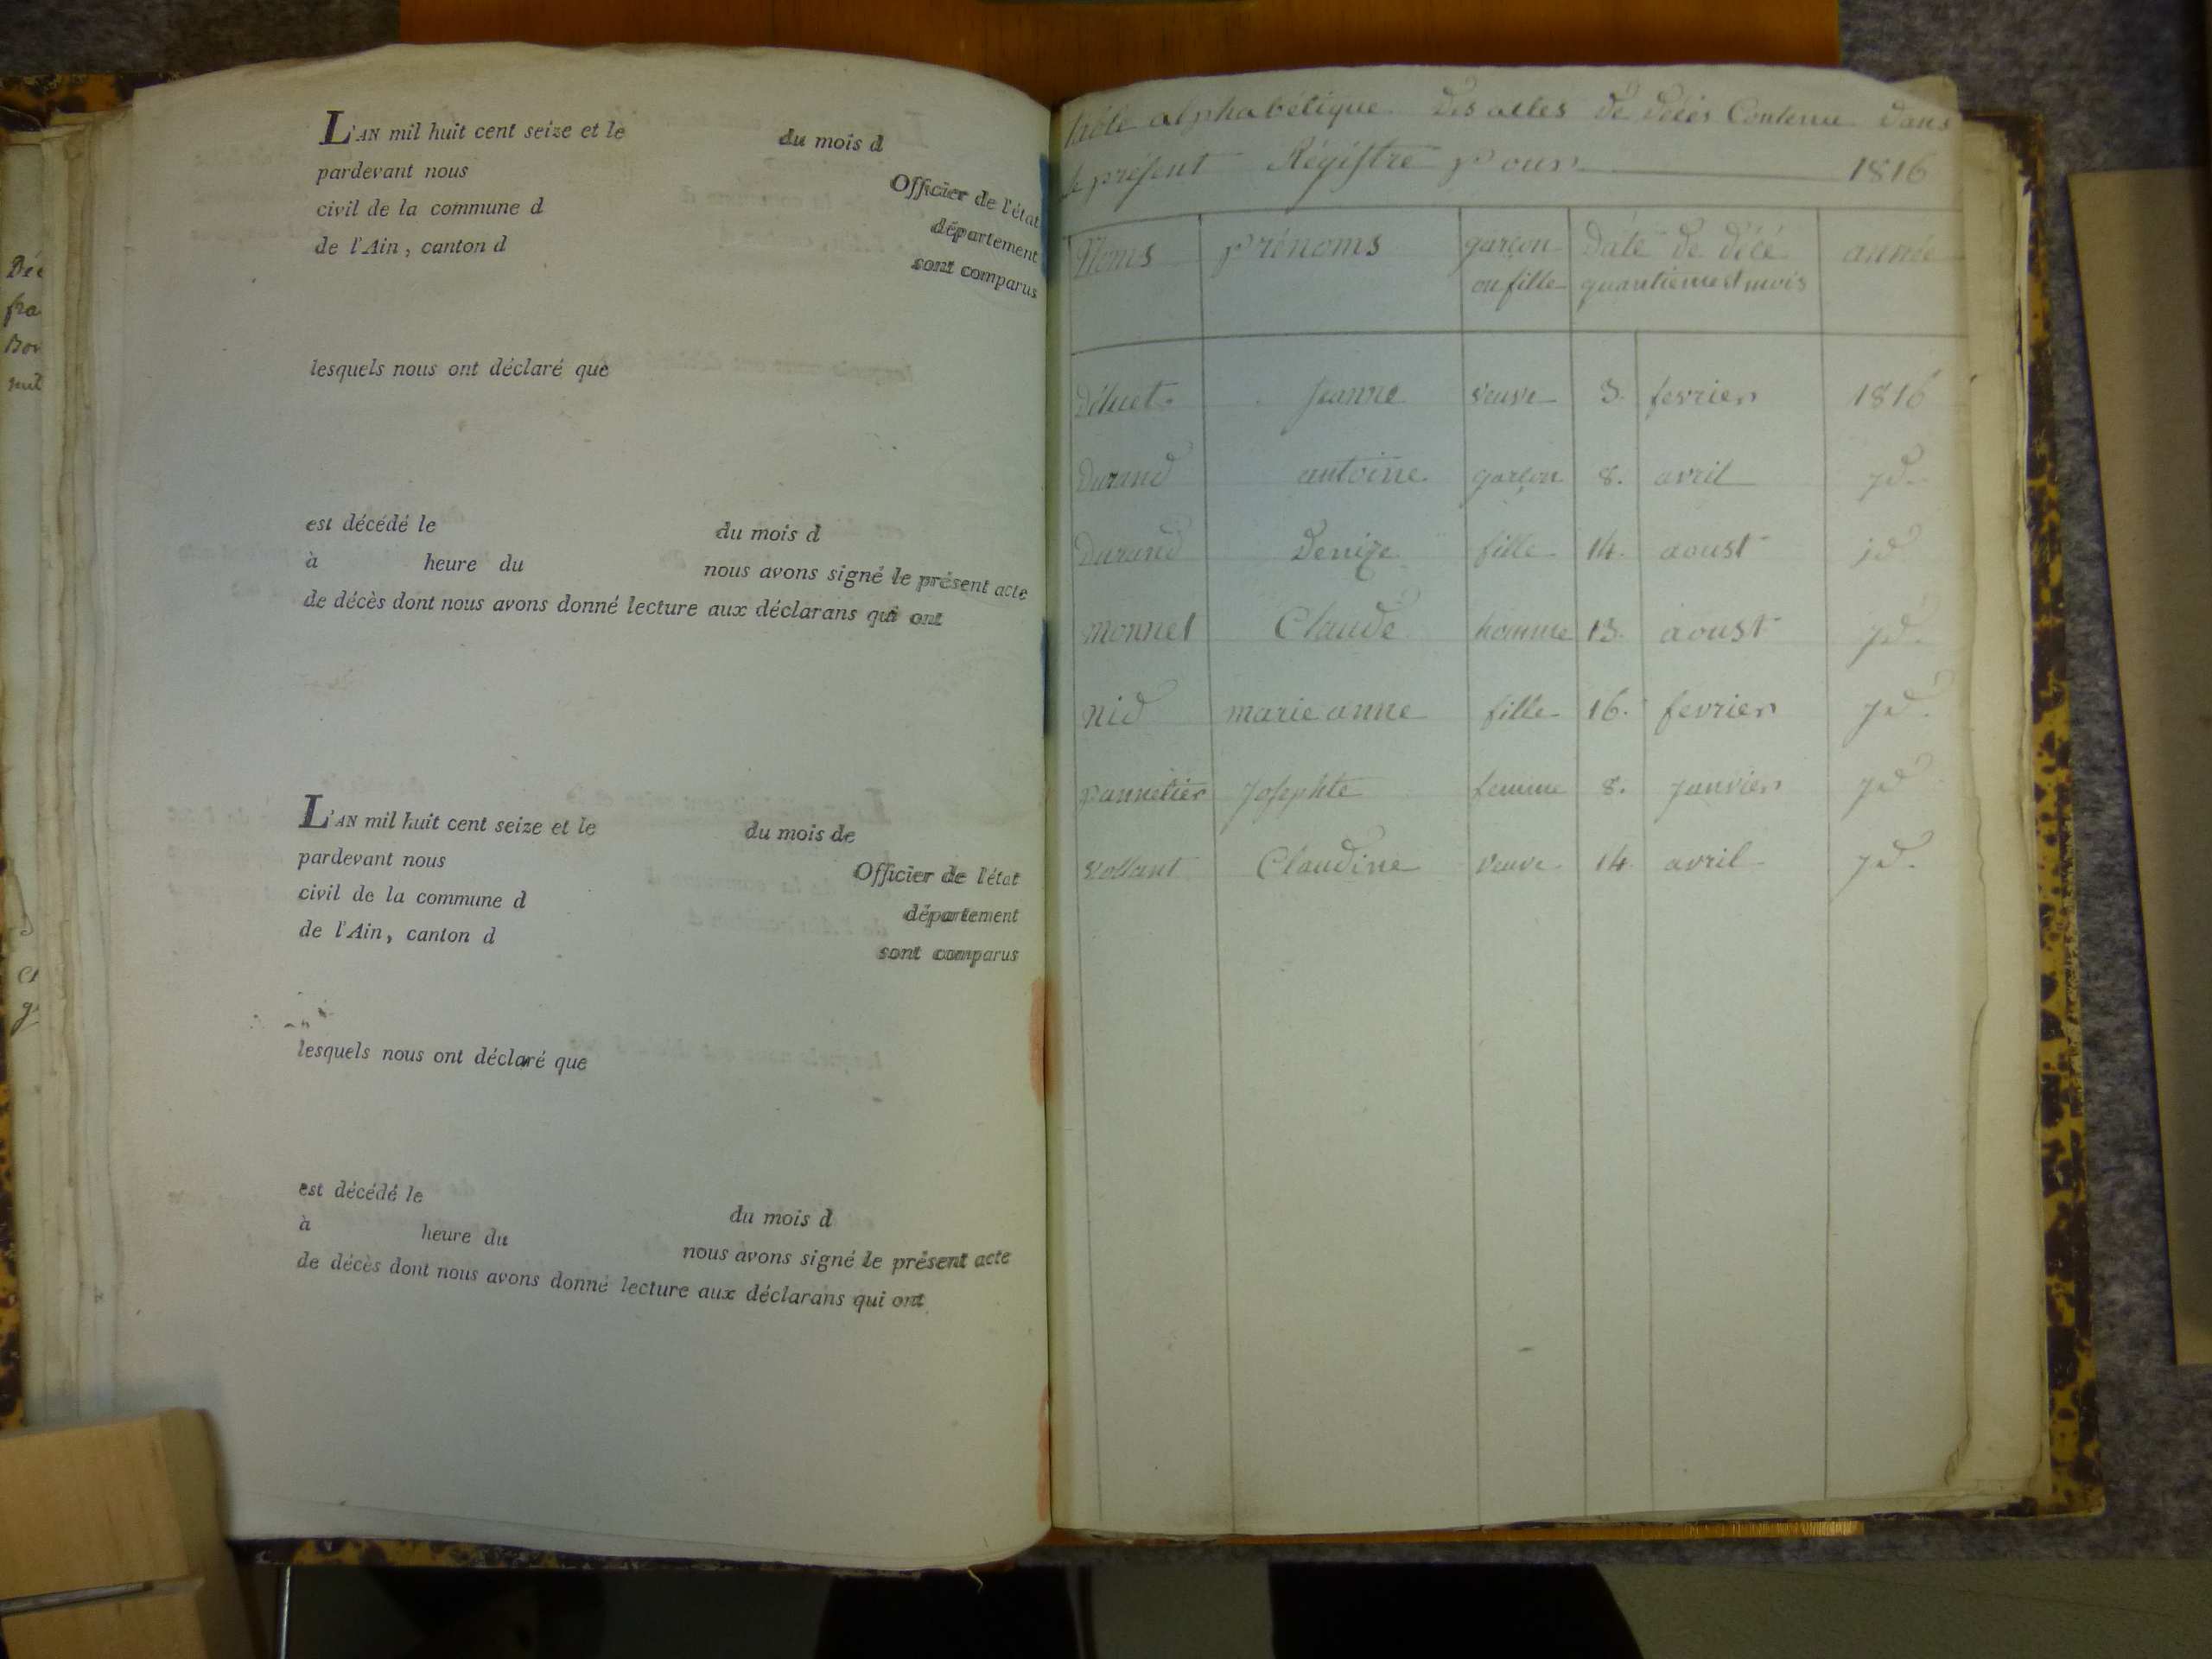 L'AN mil huit cent seize et le du mois d
pardevant nous Officier de l'état
civil de la commune d département
de l'Ain, canton d sont comparus
lesquels nous ont déclaré que
est décédé le du mois d
à heure du nous avons signé le présent acte
de décès dont nous avons donné lecture aux déclarans qui ont
L'AN mil huit cent seize et le du mois de
pardevant nous Officier de l'état
civil de la commune d département
de l'Ain, canton d sont comparus
lesquels nous ont déclaré que
est décédé le du mois d
à heure du nous avons signé le présent acte
de décès dont nous avons donné lecture aux déclarans qui ont
alphabétique Des actes de décès Contenu dans
le présent Régistre pour 1816
Noms prénoms garçon Date de décé année
ou fille quantième et mois
Jeanne veuve 3. fevrier 1816
Durand antoine garçon 8. avril jd.
Durand Denize fille 14. aoust jd
monnet Claude homme 13. aoust jd.
nid marie anne fille 16. fevrier jd.
pannetier Josephte femme 8. janvier jd
vollant Claudine veuve 14 avril jd.